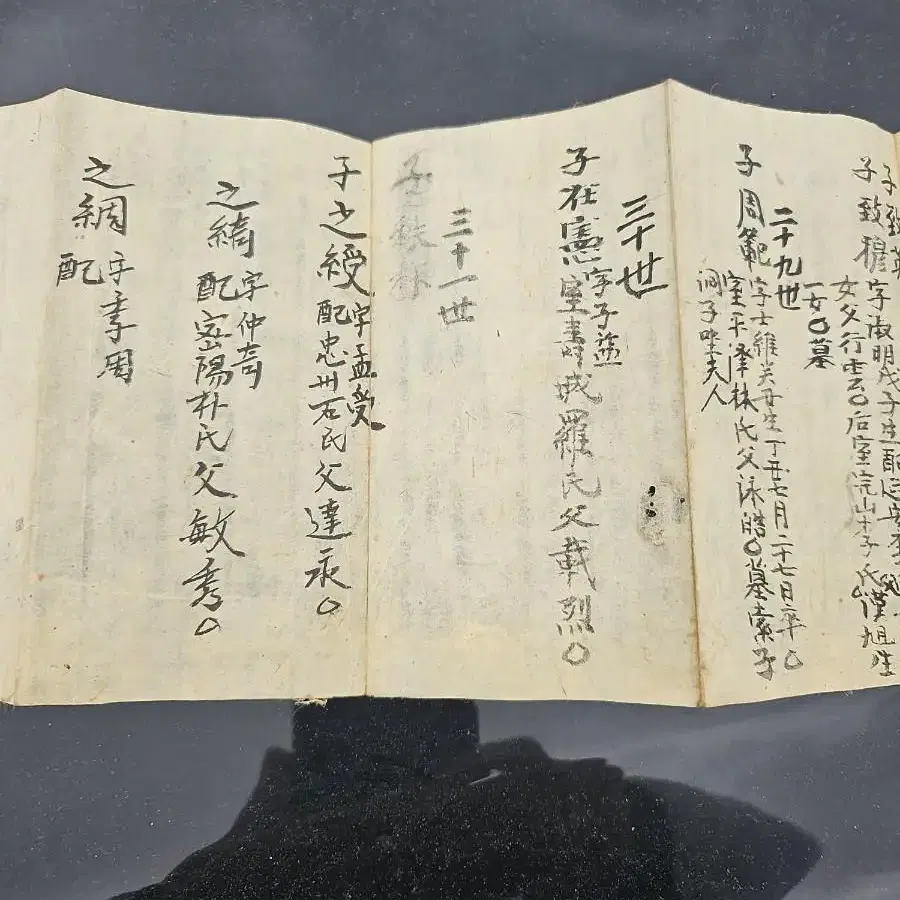 子致
子致 字淑明戊子生配
女父行雲〇后室完山李氏漢旭生
一女〇墓
二十九世
子周範
字士維 生丁丑七月二十七日卒〇
室平澤林氏父泳皓〇墓
洞子坐夫人
三十世
子在憲
字子益
室壽城羅氏父載烈〇
三十一世
子之綬
字孟受
配忠州石氏父達永〇
之綺
字仲奇
配密陽朴氏父敏秀〇
之綢
字季周
配